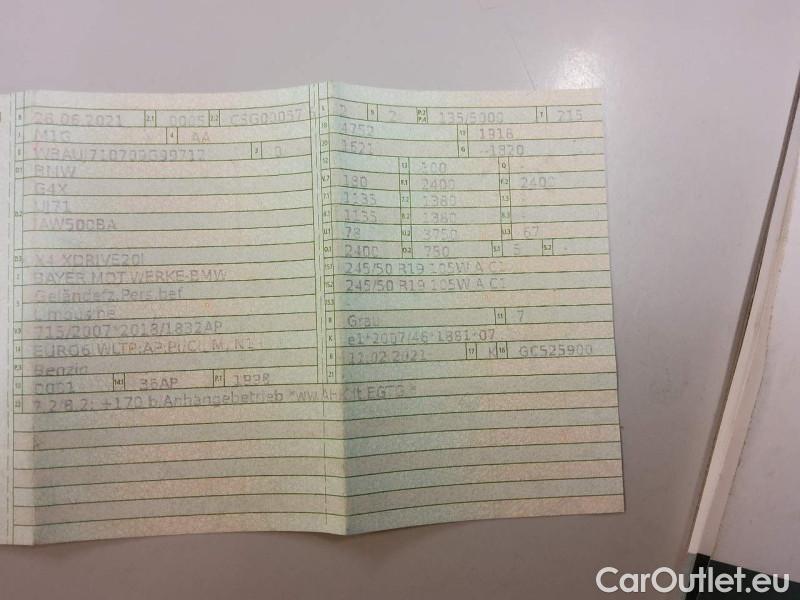 B 28.06.2021 2.1 0005 2.2 CSG00057
J M1G 4 AA
E 3 0
D.1 BMW
G4X
D.2 UJ71
D.3 X4 XDRIVE20I
2 BAYER.MOT.WERKE-BMW
5 Geländefz.Pers.bef
Limousine
V.9 715/2007*2018/1832AP
14 EURO6
P.3 Benzin
10 0001 14.1 36AP P.1 1998
22 7.2/8.2: +170 b.Anhängebetrieb
L 2 9 2 P.2 P.4 135/5000 T 215
18 4752 19 1918
20 1621 G -1820
12 - 13 100 Q -
V.7 180 F.1 2400 F.2 2400
7.1 1135 7.2 1380 7.3 -
8.1 1135 8.2 1380 8.3 -
U.1 78 U.2 3750 U.3 67
O.1 2400 O.2 750 S.1 5 S.2 -
15.1 245/50 R19 105W A C1
15.2 245/50 R19 105W A C1
15.3
R Grau 11 7
K e1*2007/46*1881*07
6 12.02.2021 17 K 16 GC525900
21
CarOutlet.eu